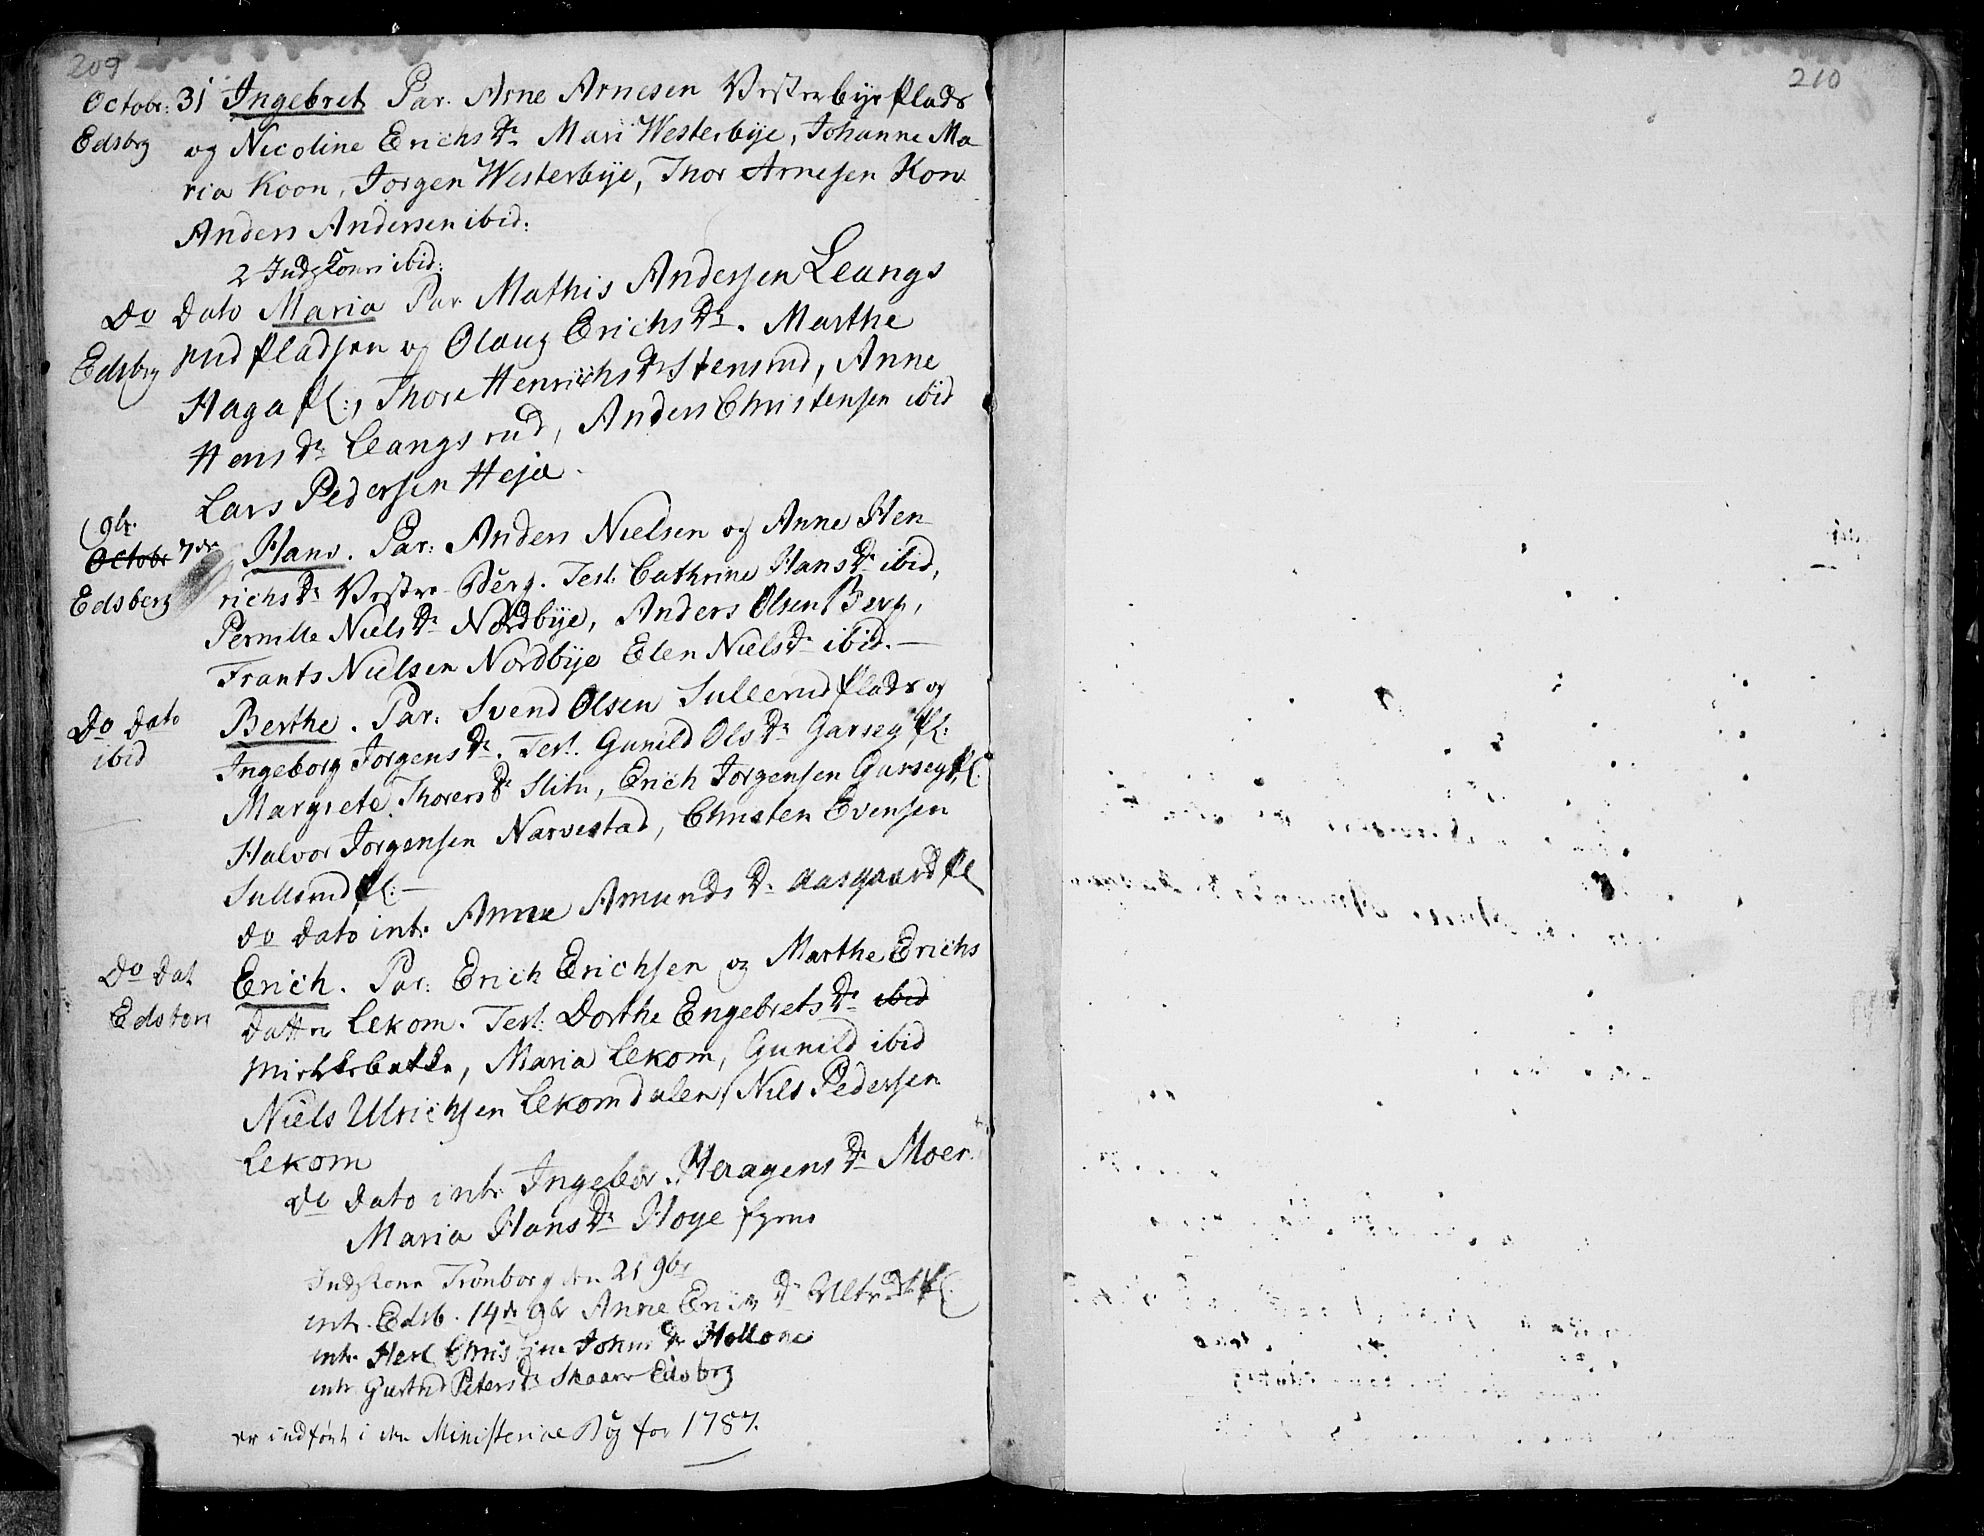 209
Octobr: 31 Ingebret Par. Arne Arnesen Vesterbye plads
Edsbrg og Nicoline Erichs Dr Mari Westerbye, Johanne Ma-
ria Koon, Jorgen Westerbye, Thor Arnesen Kon
Anders Andersen ibid:
2 Indskomn ibid:
Do Dato Maria Par Mathis Andersen Leangs
Edsbrg rud pladsen og Olaug Erichs Dr. Marthe
Haga pl:, Thore Henrichs Dr Stensrud, Anne
Hans Dr Leangsrud, Anders Christensen ibid
Lars Pedersen Heja.
9br.
Octobr 7de Hans. Par: Anders Nielsen og Anne Hen-
Edsberg richs Dr Vestre-Berg. Test: Cathrine Hans Dr ibid,
Pernille Niels Dr Nordbye, Anders Olsen Berg,
Frants Nielsen Nordbye Elen Niels Dr ibid.—
Do Dato Berthe. Par: Svend Olsen Sullerud plads og
ibid Ingeborg Jorgens Dr. Test. Gunild Ols Dr Garseg pl:
Margrete Thorers Dr Slitu, Erich Jorgensen Garseg pl:
Halvor Jorgensen Narvestad, Christen Evensen
Sullerud pl:—
Do Dato intr. Anne Amunds Dr. Aasgaard pl
Do Dat Erich. Par: Erich Erichsen og Marthe Erichs
Edsberg Datter Lekom. Test: Dorthe Engebrets Dr ibid
Mirkerbakke, Maria Lekom, Gunild ibid
Niels Ulrichsen Lekomdalen, Niels Pedersen
Lekom
Do Dato intr. Ingebor Haagens Dr Moer
Maria Hans Dr Hoye
Indskomn Tronborg den 21 9br
intr. Edsb. 14de 9br Anne Erichs Dr pl.
intr. Herl Christine Johns Dr
intr Gurtrud Peters Dr Skaarr Edsbrg
er indført i den Ministerial Bog for 1787.
210